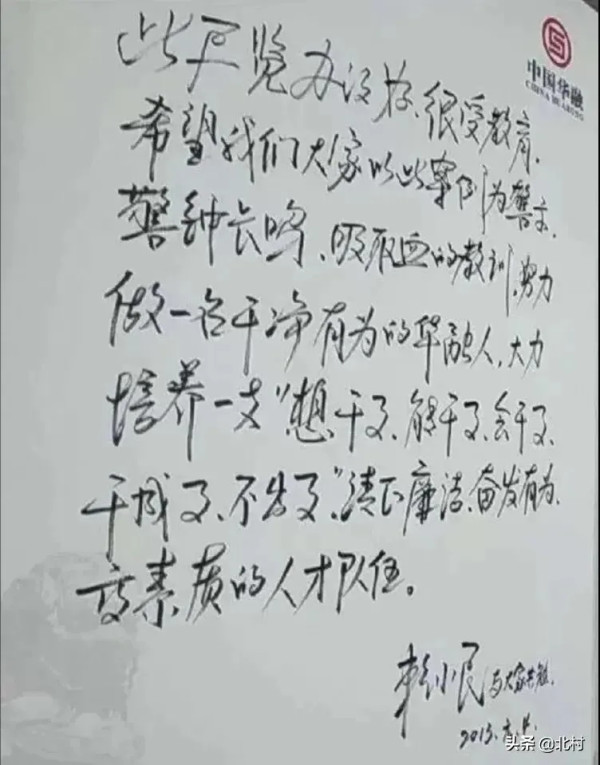 中国华融
CHINA HUARONG
此展览办得好,很受教育,
希望我们大家以此案例为警示,
警钟长鸣、吸取血的教训,努力
做一名干净有为的华融人,大力
培养一支“想干事、能干事、会干事、
干成事、不出事”,清正廉洁、奋发有为、
高素质的人才队伍。
赖小民与大家共勉
2015.
头条@北村